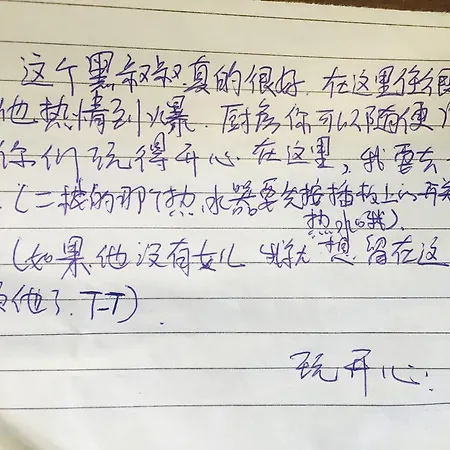 这个黑叔叔真的很好.在这里住很
他热情到火爆.厨房你可以随便
你们玩得开心在这里,我要去
.(二楼的那个热水器要先按插板上的开关
热水哦).
(如果他没有女儿 我就想留在这
他了.T-T)
玩开心.